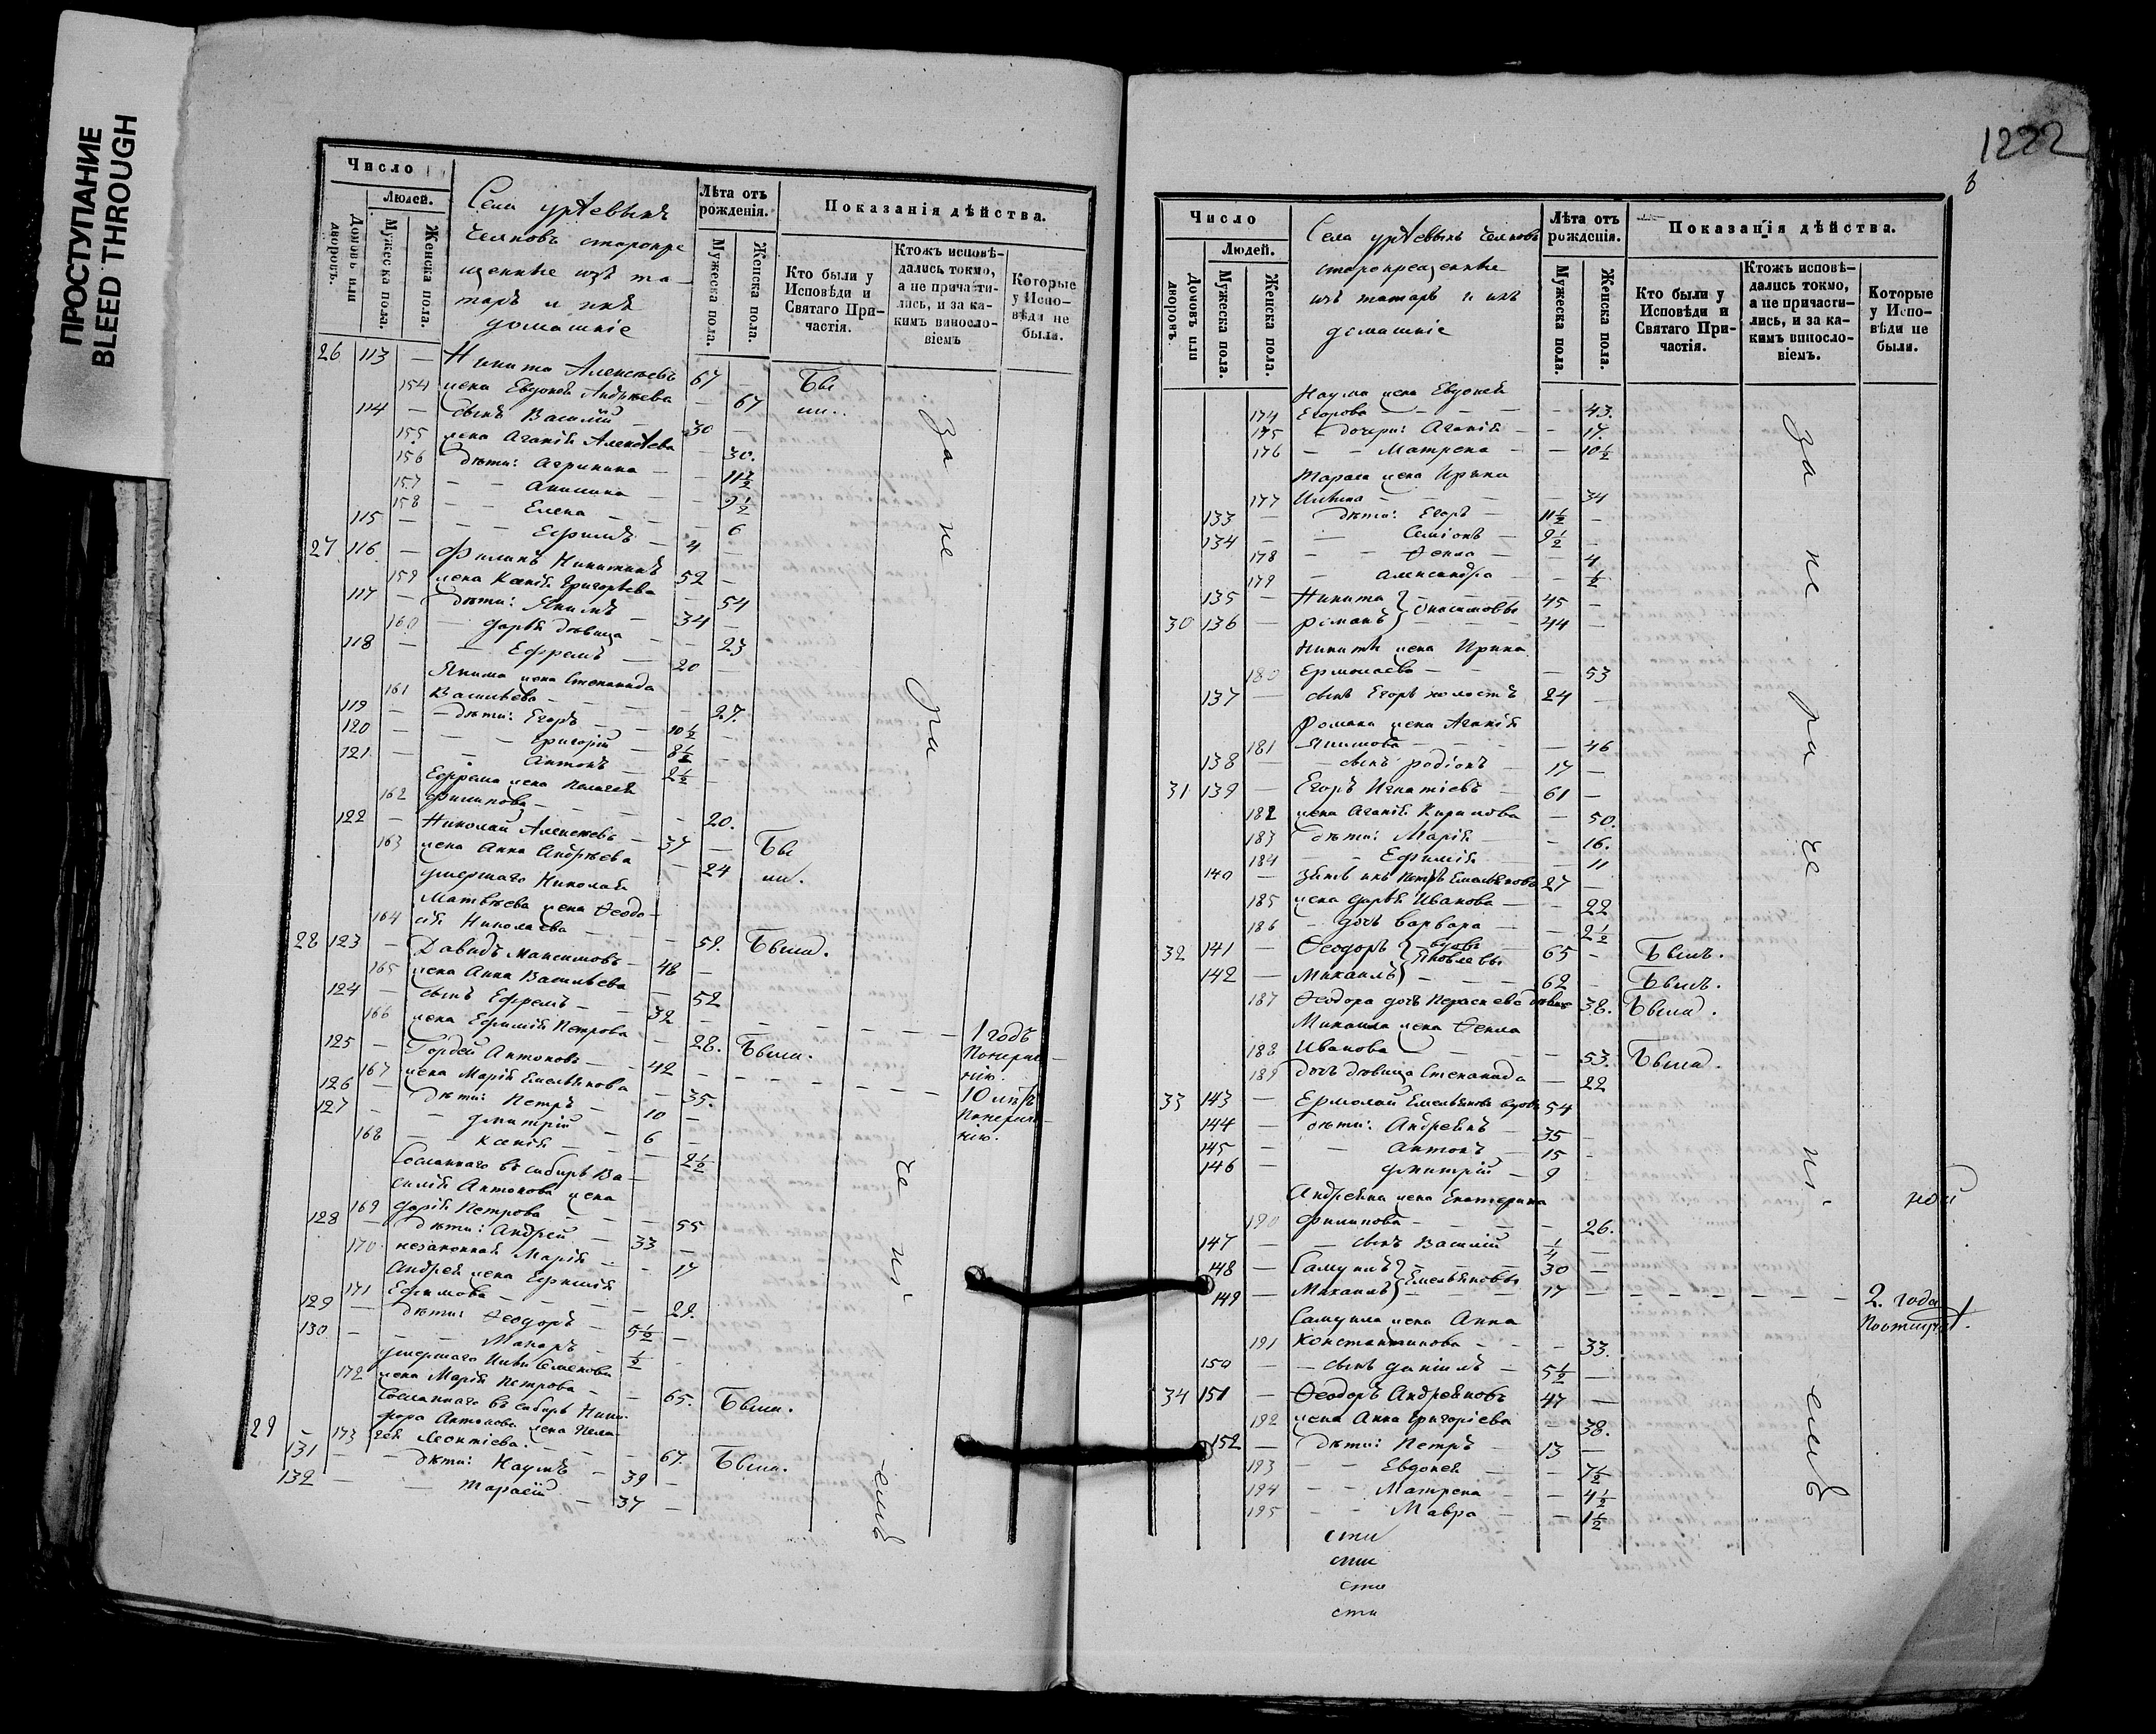 ПРОСТУПАНИЕ
BLEED THROUGH
Число
Людей.
Домовъ или дворовъ.
Мужеска пола.
Женска пола.
Села
старокре
щенные изъ та-
таръ и ихъ
домашніе
Лѣта отъ рожденія.
Мужеска пола.
Женска пола.
Показанія дѣйства.
Кто были у Исповѣди и Святаго Причастія.
Ктожъ исповѣдались токмо, а не причастились, и за какимъ винословіемъ
Которые у Исповѣди не были.
26 113 — Никита Алексѣевъ 67 — Бы
154 жена Евдокія Андрѣева — 67 ли..
114 — сынъ Василій 30 —
155 жена Агафія Алексѣева — 30.
156 дѣти: Агрипина — 11 1/2
157 — — Акилина — 9 1/2
158 — — Елена — 6
115 — — — Ефимъ — 4 —
27 116 — Филипъ Никитинъ 52 —
159 жена Ксенія Григорьева — 54
117 — дѣти: Якимъ — 34 —
160 — Дарья дѣвица — 23
118 — — Ефремъ — 20 —
Якима жена Степанида
161 Васильева — — 27.
119 — — дѣти: Егоръ — 10 1/2 —
120 — — — Григорій — 8 1/2 —
121 — — Антонъ — 2 1/2 —
Ефрема жена Пелагея
162 Филипова — — 20.
122 — Николай Алексѣевъ — 37 — Бы
163 жена Анна Андрѣева — 24 ли.
умершаго Николая
Матвѣева жена Ѳеодо-
164 сія Николаева — — 59. Была.
28 123 — Давидъ Максимовъ — 48 —
165 жена Анна Васильева — 52
124 — сынъ Ефремъ — 32 — — — — 1 годъ
166 жена Ефимія Петрова — 28. Была.
125 — Гордей Антоновъ — 42 — — — — 10 лѣтъ
167 жена Марія Емельянова — 35.
126 — дѣти: Петръ — 10 —
127 — — Дмитрій — 6 —
168 — — Ксенія — — 2 1/2
Сосланнаго въ Сибирь Ва-
силія Антонова жена
169 Дарія Петрова — — 55
128 — дѣти: Андрей — 33 —
170 незаконная Марія — — 17
Андрея жена Ефимія
171 Ефимова — — 29.
129 — дѣти: Ѳеодоръ — 5 1/2 —
130 — — — Макаръ — 1/2 —
умершаго Семенова
172 жена Марія Петрова — — 65. Была.
Сосланнаго въ Сибирь Ники-
фора Антонова жена Пела
29 — 173 гея Леонтіева. — — 67. Была.
131 — — дѣти: Наумъ — 39 —
132 — — Тарасій — 37 —
за не ра че ні- емъ
1222
Число
Людей.
Домовъ или дворовъ.
Мужеска пола.
Женска пола.
Села
старокрещенные
изъ татаръ и ихъ
домашніе
Лѣта отъ рожденія.
Мужеска пола.
Женска пола.
Показанія дѣйства.
Кто были у Исповѣди и Святаго Причастія.
Ктожъ исповѣдались токмо, а не причастились, и за какимъ винословіемъ.
Которые у Исповѣди не были.
Наума жена Евдокія
174 Егорова — — — — 43.
175 — дочери: Агафія — — 17.
176 — — Матрена — — 10 1/2
Тараса жена Ирина
177 Ильина — — — 34
133 — дѣти: Егоръ — 11 1/2 —
134 — — Семіонъ — 9 1/2 —
178 — — Ѳекла — — 4
179 — Александра — — 1/2
135 — Никита 45 —
30 136 — Романъ } Онисимовы 44 —
Никиты жена Ирина
180 Ермолаева — — 53
137 — сынъ Егоръ холостъ 24 —
Романа жена Агафія
181 Якимова — — 46
138 — — сынъ Родіонъ — 17 —
31 139 — Егоръ Игнатіевъ — 61 —
182 жена Агафія Кирилова — 50.
183 дѣти: Марія — — 16.
184 — — Ефимія — — 11
140 — зять ихъ Петръ Емельяновъ 27 —
185 жена Дарья Иванова — — 22
186 — дочь Варвара — — 2 1/2
32 141 — Ѳеодоръ } вдовъ Яковлевы 65 — Былъ.
142 — Михаилъ — — 62 — Былъ.
187 Ѳеодора дочь Параскева дѣвица 38. Была.
Михаила жена Ѳекла
188 Иванова — — — 53. Была.
189 дочь дѣвица Степанида — 22
33 143 — Ермолай Емельяновъ вдовъ 54
144 — дѣти: Андреянъ — 35 —
145 — — Антонъ — 15 —
146 — Дмитрій — 9
Андреяна жена Екатерина
190 Филипова — — — 26.
147 — — сынъ Василій 1/4 —
148 — Самуилъ } Емельяновы 30 —
149 — Михаилъ 17 — — — — — 2. года
Самуила жена Анна
191 Константинова — — 33.
150 — — сынъ Даніилъ — 5 1/2 —
34 151 — Ѳеодоръ Андреяновъ 47 —
192 жена Анна Григоріева — 38.
152 — дѣти: Петръ — 13 —
193 — — Евдокея — — 7 1/2
194 — — Матрена — — 4 1/2
195 — — Мавра — — 1 1/2
за не ра че ні- емъ